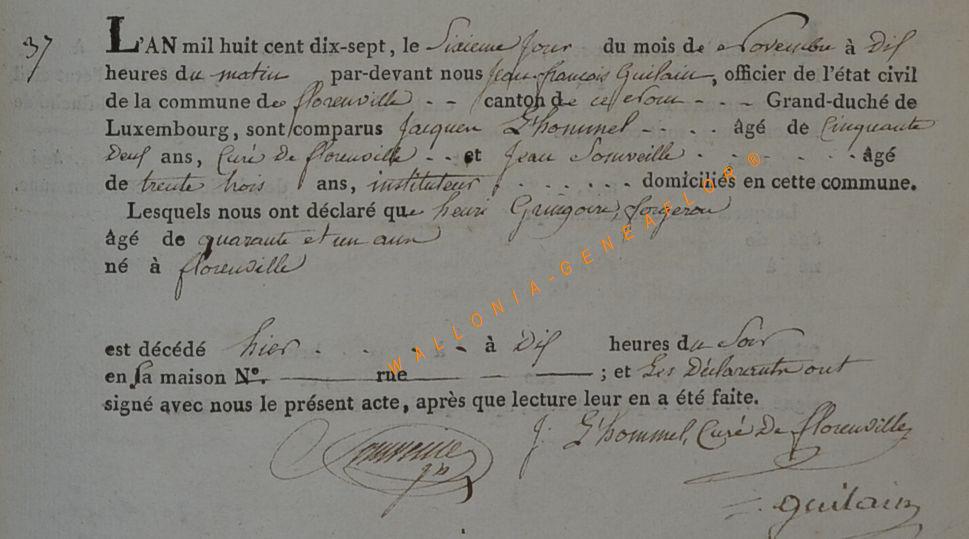 37
L'AN mil huit cent dix-sept, le Sixieme jour du mois de Novembre à Dix
heures du matin par-devant nous Jean françois Guilain, officier de l'état civil
de la commune de florenville - - canton de ce nom - - - Grand-duché de
Luxembourg, sont comparus Jacques L'hommel - - . . âgé de Cinquante
Deux ans, Curé De florenville - - et Jean Somveille - - - - - - âgé
de trente trois ans, instituteur, . . . . . . domiciliés en cette commune.
Lesquels nous ont déclaré que henri Gringoire, forgeron
âgé de quarante et un ans
né à florenville
est décédé hier . . . - à Dix heures du Soir
en sa maison N°. rue ; et Les Déclarants ont
signé avec nous le présent acte, après que lecture leur en a été faite.
J. L'hommel, Curé De florenville
guilain
WALLONIA-GENEAFLOR ®